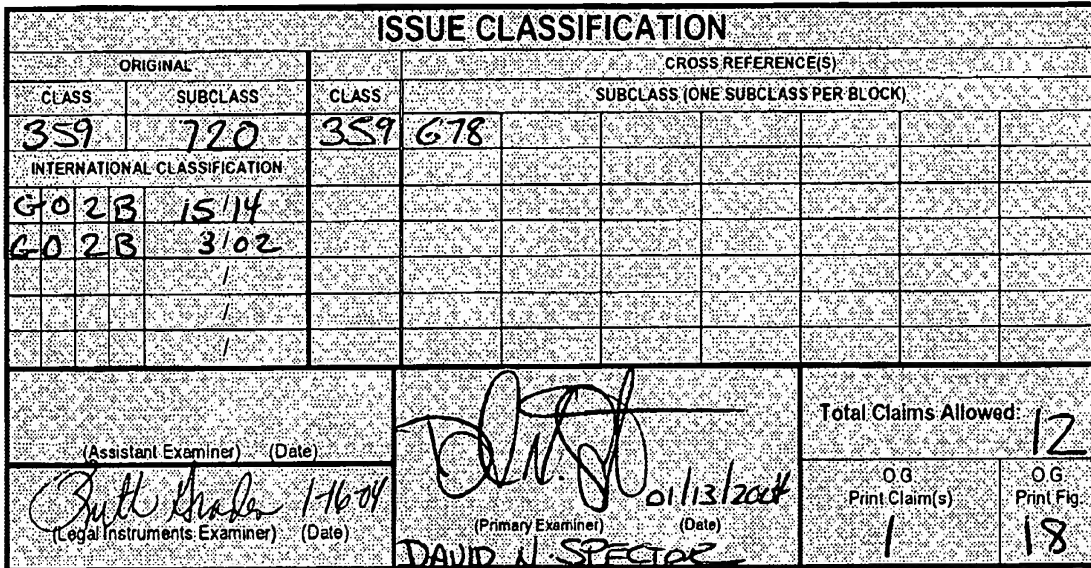 ISSUE CLASSIFICATION
ORIGINAL CROSS REFERENCE(S)
CLASS SUBCLASS CLASS SUBCLASS (ONE SUBCLASS PER BLOCK)
359 720 359 678
INTERNATIONAL CLASSIFICATION
G 0 2 B 15/14
G 0 2 B 3/02
/
/
/
(Assistant Examiner) (Date)
Total Claims Allowed: 12
Ruth 1-16-04
(Legal Instruments Examiner) (Date)
01/13/2004
(Primary Examiner) (Date)
DAVID N. SPECTOR
O.G. Print Claim(s)
1
O.G. Print Fig.
18